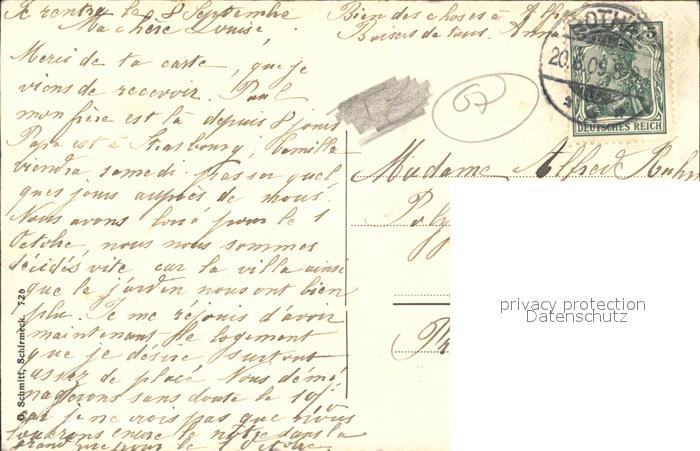 Je rentre le 8 Septembre
Bien des choses à
Ma chère Louise.
Baisers de tous. Anna
Merci de ta carte, que je
viens de recevoir. Paul
mon frère est là depuis 8 jours
Papa est à Strasbourg, Camille
viendra samedi passer quel
ques jours auprès de nous.
Nous avons loué pour le 1
Octobre, nous nous sommes
décidés vite car la villa ainsi
que le jardin nous ont bien
plu. Je me réjouis d'avoir
maintenant le logement
que je désire surtout
assez de place. Nous démé
nagerons sans doute le 10
car je ne crois pas que nous
louerons encore le nôtre dans la
pour le 1 Octobre.
GOTHA
20.8.09.8
5
DEUTSCHES REICH
57
Madame Alfred
G. Schmitt, Schirmeck. 726
privacy protection
Datenschutz